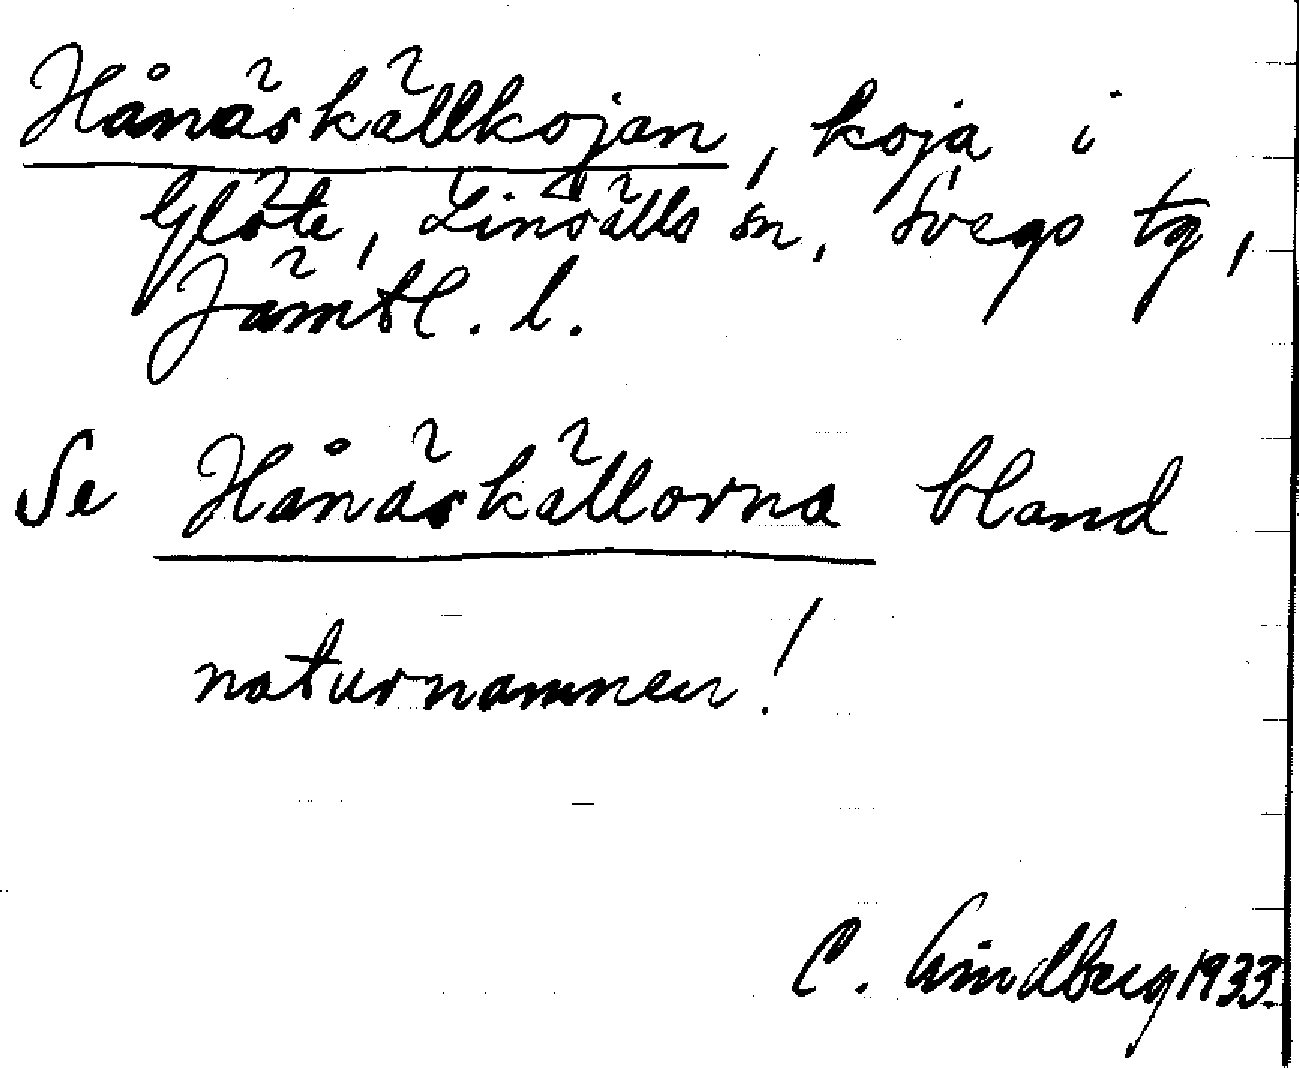 Hånäskällkojan, koja i
Glöte, Linsälls sn, Svegs tg,
Jämtl. l.
Se Hånäskällorna bland
naturnamnen!
C. Lindberg 1933.